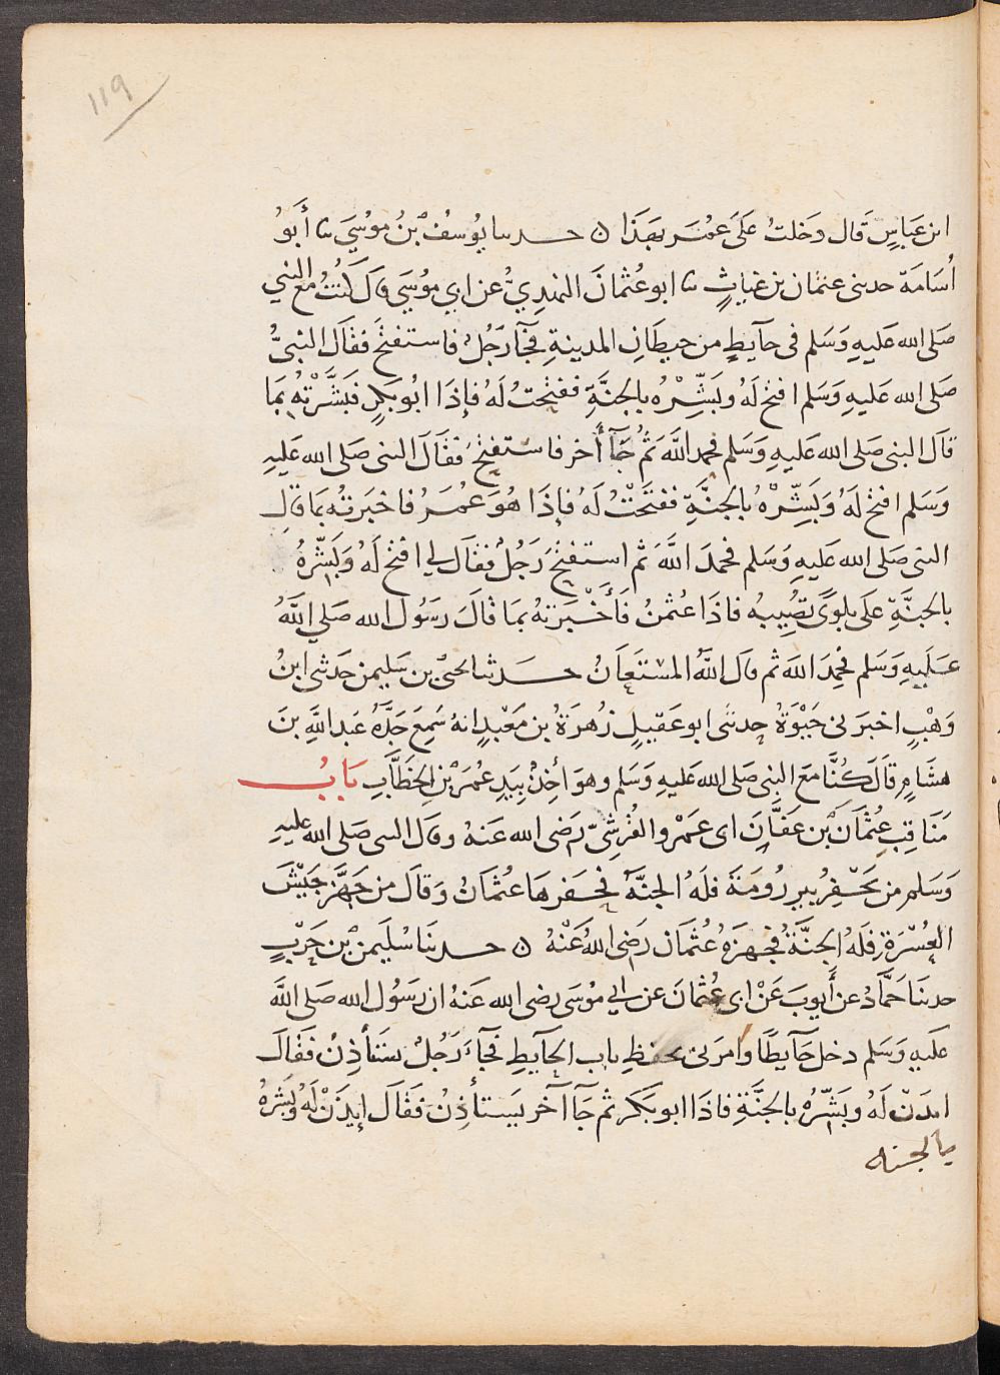 119
ابن عَباسٍ قَال دَخلتُ عَلَى عمُـَر بهَذَا ن حـدثنا يوُسفُ بْنُ موُسَي ثنا أَبوُ
اُسَامَة حدثنى عثمان بن غياثٍ ثنا ابو عُثمانَ النهدِيُّ عن ابي موُسَي قال كُنتُ مع النبي
صَلى الله عَليهِ وَسَلم فى حآيطٍ من حيطَانِ المدينةِ فجَآ رَجُلٌ فاستفتحَ فقَال النبىُّ
صَلى الله عَليهِ وَسَلم افتح لَهُ وبَشِّرْهُ بالجنَّةِ ففتحتُ لَهُ فإِذَا ابُو بَكرٍ فبَشَّرْتهُ بِمَا
قَال النبى صَلى الله عَليهِ وَسَلم فحمد اللَّهَ ثمُ جَآ أَخر فاستفتحَ فقَالَ النبى صَلى الله عَليهِ
وَسَلم افتح لَهُ وَبَشِّرْهُ بالجنَّةِ ففتَحْتُ لَهُ فإذَا هُوَ عُمَرُ فاخبَرتهُ بمَا قال
النبى صَلى الله عَليهِ وَسَلم فحمدَ اللَّهَ ثم استفتحَ رَجُلٌ فقَال لي افتح لَهُ وَبَشِّرهُ
بالجنَّةِ عَلَى بلوَىً تصُيبهُ فاذَا عثمنُ فَأَخْبَرتهُ بمَا قَالَ رَسُول الله صَلي اللَّهُ
عَـلَيهِ وَسَلم فحَمِدَ اللهَ ثم قال اللَّهُ المسْتعَانُ حـَدثنا يحيىَ بن سَليمن حَدثنى ابنُ
وَهْبٍ اخبرَنى حَيْوَةُ حدثنى ابو عَقيلٍ زُهرَةُ بن مَعْبدٍ انهُ سَمِعَ جَدَّهُ عَبد اللَّهِ بنَ
هشَامٍ قَالَ كُنَّا مَعَ النبى صَلى الله عَليهِ وَسَلم وهوَ أَخِذٌ بِيَدِ عُمَرَ بْنِ الخطَّابِ بَابُ
مَنَاقِبِ عُثمَانَ بْن عَفَّانَ ابى عَمْرو القُرشِىّ رَضى الله عَنهُ وقال النبى صَلى الله عليهِ
وَسَلم من يَحْفِرُ بير رُومَةَ فلَهُ الجنَّة فحَفرهَا عثمَانُ وَقالَ من جَهَّز جَيْشَ
العُسْرَةِ فَلَهُ الجنَّةُ فجهزَهُ عُثمَان رَضى اللهُ عَنْهُ ن حـدثنَا سُليَمن بْن حَرْبٍ
حدثنَا حَمَّادُ عن أَيوبَ عَنْ ابى عُثمَانَ عن ابي موُسَى رضى الله عَنهُ ان رَسُول الله صَلى اللَّه
عَليهِ وَسَلم دخل حَآيطًا وامرَنى بحفظِ باب الحآيطِ فجَآءَ رَجُلٌ يستَأذِنُ فقَالَ
ايذن لَهُ وبَشِّرْهُ بالجنَّةِ فاذَا ابو بَكر ثم جَآ آخر يَستأذِنُ فقَالَ ايذنْ لَهُ وبَشرهُ
بالجنه